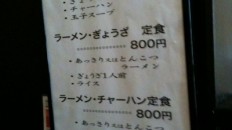 ・ぎょうざ
・チャーハン
・玉子スープ
ラーメン・ぎょうざ 定食
800円
・あっさり又はとんこつ
ラーメン
・ぎょうざ1人前
・ライス
ラーメン・チャーハン定食
800円
・あっさり又はとんこつ